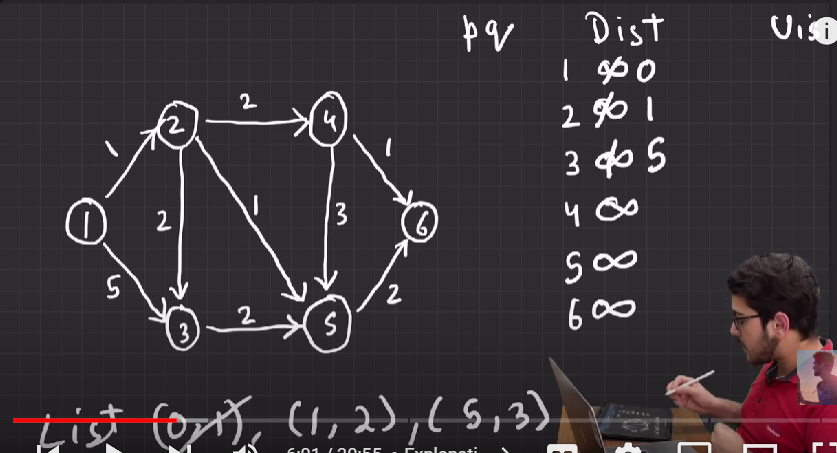 pq Dist Vis
1 ∞ 0
2 ∞ 1
3 ∞ 5
4 ∞
5 ∞
6 ∞
1 2 3 4 5 6
1 5 2 2 1 2 3 1 2
List (0,1), (1,2), (5,3)
6:01 / 20:55 • Explanati